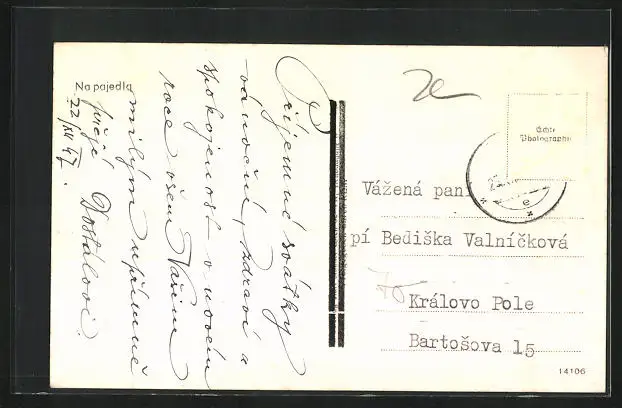 Napajedla
Příjemné svátky
vánoční, zdraví a
spokojenost v novém
roce všem Vašim
milým upřímně
přejí Dostálovi.
22/XII 47.
Echte
Photographie
Vážená paní
pí Bediška Valníčková
Královo Pole
Bartošova 15
14106